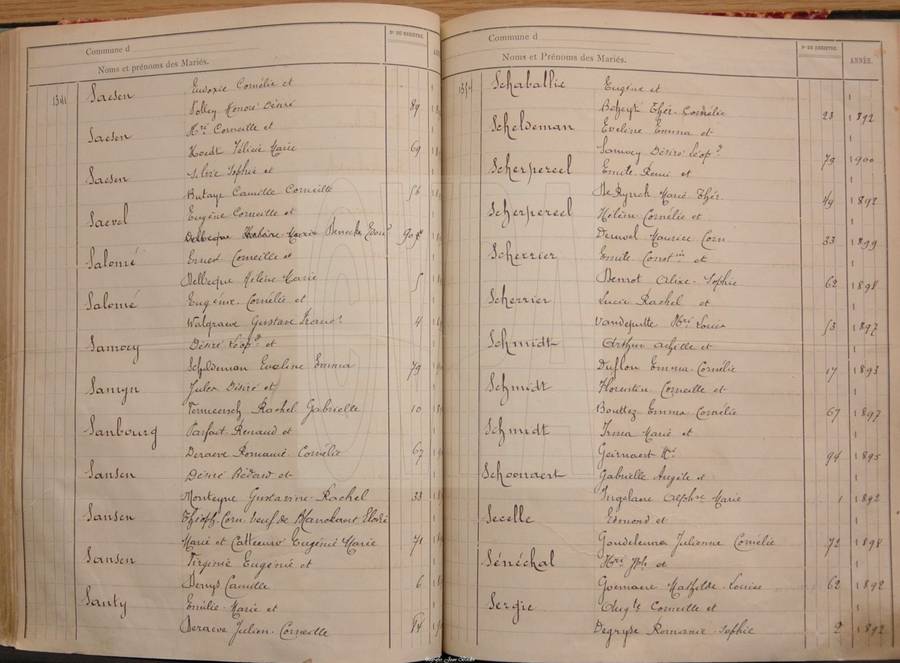 Commune d
Noms et prénoms des Mariés.
Nº DU REGISTRE.
Saesen Eudoxie Cornélie et
Polley Honoré Désiré 89
Saesen Hri Corneille et
Hoedt Félicie Marie 69
Saesen Silvie Sophie et
Butaye Camille Corneille 56
Saevel Eugène Corneille et
Salomé Ernest Corneille et
Delbecque Hélène Marie 5
Salomé Eugénie Cornélie et
Walgraeve Gustave 4
Samoey Désiré Léopd et
Scheldeman Eveline Emma 79
Samyn Jules Désiré et
Vermeersch Rachel Gabrielle 10
Sanbourg Parfait Renaud et
Deraeve Romanie Cornélie 67
Sansen Désiré et
Monteyne Gustavine Rachel 33
Sansen Théoph. Corn. veuf de Elodie
Marie et Catteeuw Eugénie Marie 71
Sansen Virginie Eugénie et
Denys Camille 6
Santy Emilie Marie et
Deraeve Julien Corneille
Commune d
Noms et Prénoms des Mariés.
Nº DU REGISTRE.
ANNÉE.
Schaballie Eugène et
Beheyt Thér. Cornélie 23 1892
Scheldeman Eveline Emma et
Samoey Désiré Léopd 79 1900
Scherpereel Emile Remi et
De Rynck Marie Thér. 49 1892
Scherpereel Hélène Cornélie et
Maurice Corn. 33 1899
Scherrier Emile Constin et
Benrot Alixe Sophie 62 1898
Scherrier Lucie Rachel et
Vandeputte Hri Louis 53 1897
Schmidt Arthur Achille et
Duflou Emma Cornélie 17 1893
Schmidt Florentin Corneille et
Bouttez Emma Cornélie 67 1897
Schmidt Irma Marie et
Geirnaert Hri 94 1895
Schoonaert Gabrielle Angèle et
Ingelaere Alphse Marie 1 1892
Secelle Edmond et
Goudeleune Julienne Cornélie 72 1898
Sénéchal Hri et
Goemaere Mathilde Louise 62 1892
Sergie Augte Corneille et
Degryse Romanie Sophie 2 1892